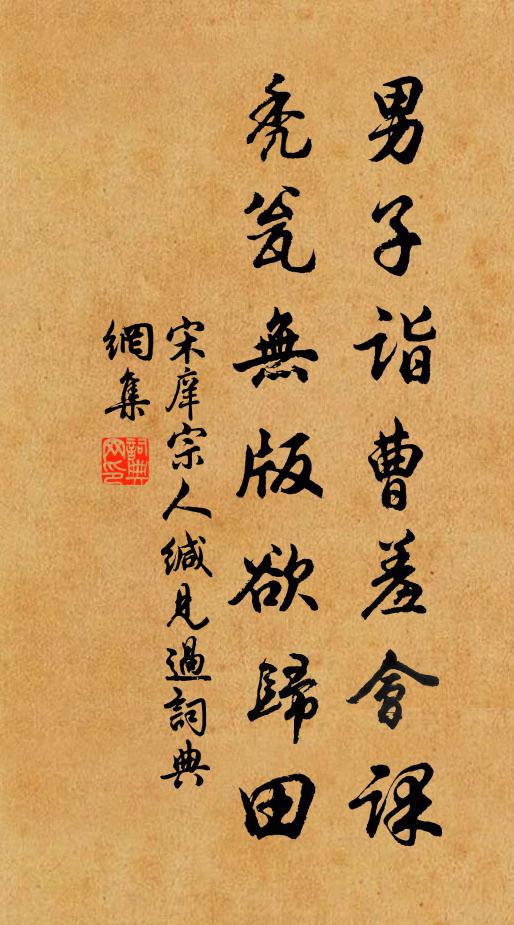 男子詣曹羞會課
禿瓮無版欲歸田
宋庠宗人緘見過詞典
網集
詞典網印